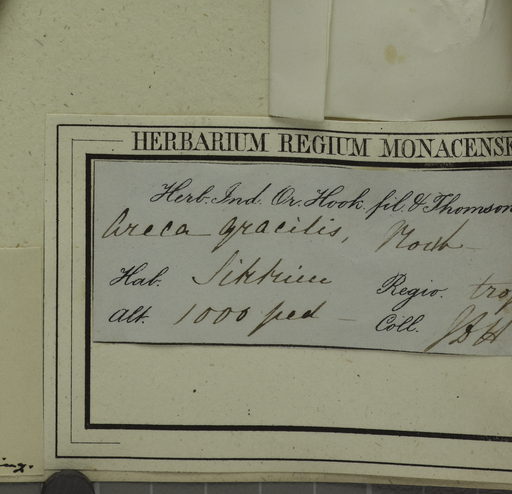 HERBARIUM REGIUM MONACENS
Herb. Ind. Or. Hook. fil. & Thomson
Areca gracilis, Roxb
Hab. Sikkim Regio. trop
Alt. 1000 ped — Coll. JDH
ing.